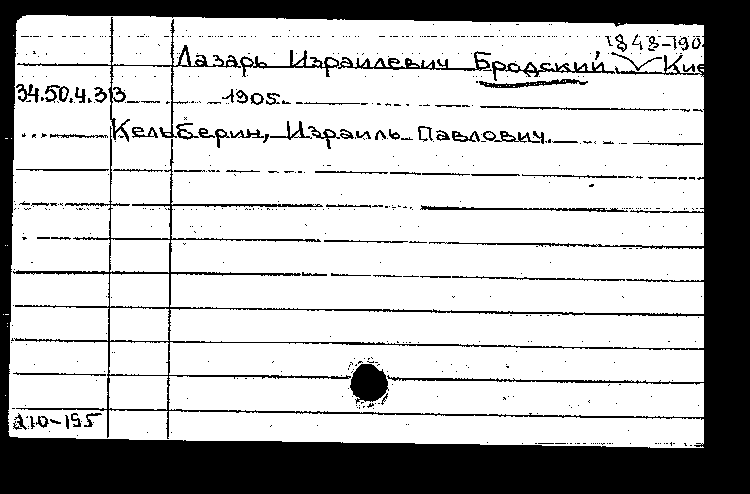 1848-190
Лазарь Израилевич Бродский, Кие
34.50.4.33 1905.
Кельберин, Израиль Павлович.
210-195